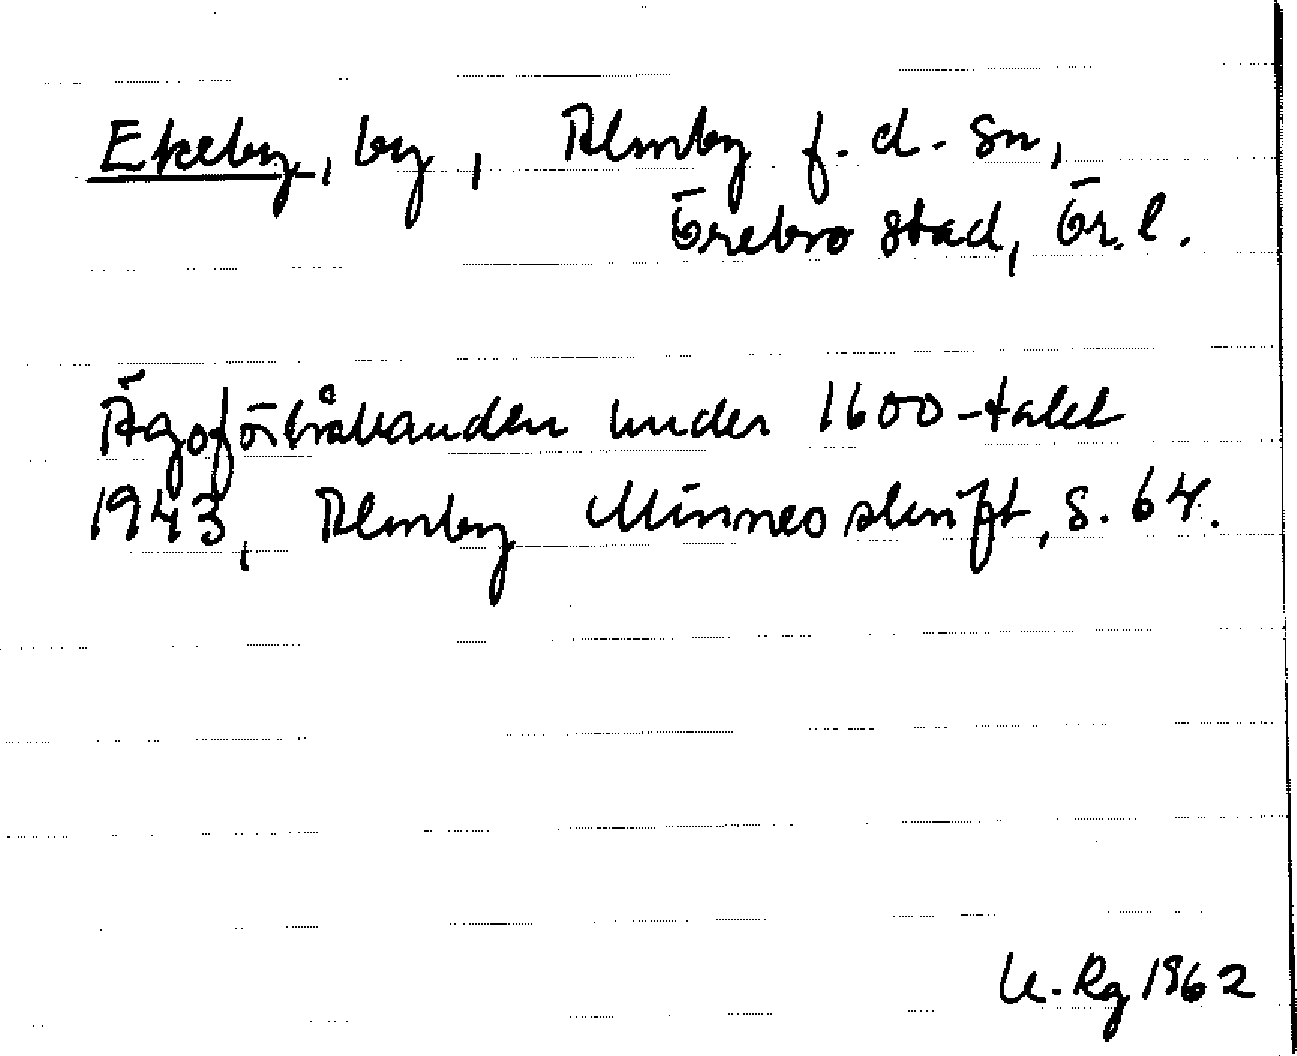 Ekeby, by, Almby f.d. sn,
Örebro stad, Ör. l.
Ägoförhållanden under 1600-talet
1943, Almby Minnesskrift, s. 64.
U. Rg 1962